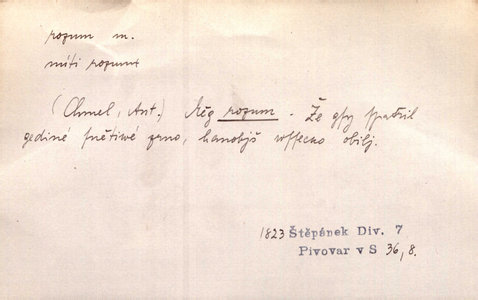 rozum m.
míti rozum
(Chmel, Ant.) Měg rozum. Že gsy spatřil
gediné snětiwé zrno, hanobjš wssecko obilj.
1823 Štěpánek Div. 7
Pivovar v S 36, 8.